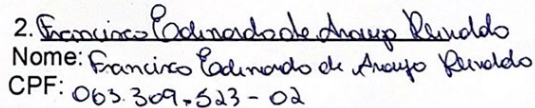 2. Francisco Edinardo de Araujo Reinaldo
Nome: Francisco Edinardo de Araujo Reinaldo
CPF: 063.309.523-02